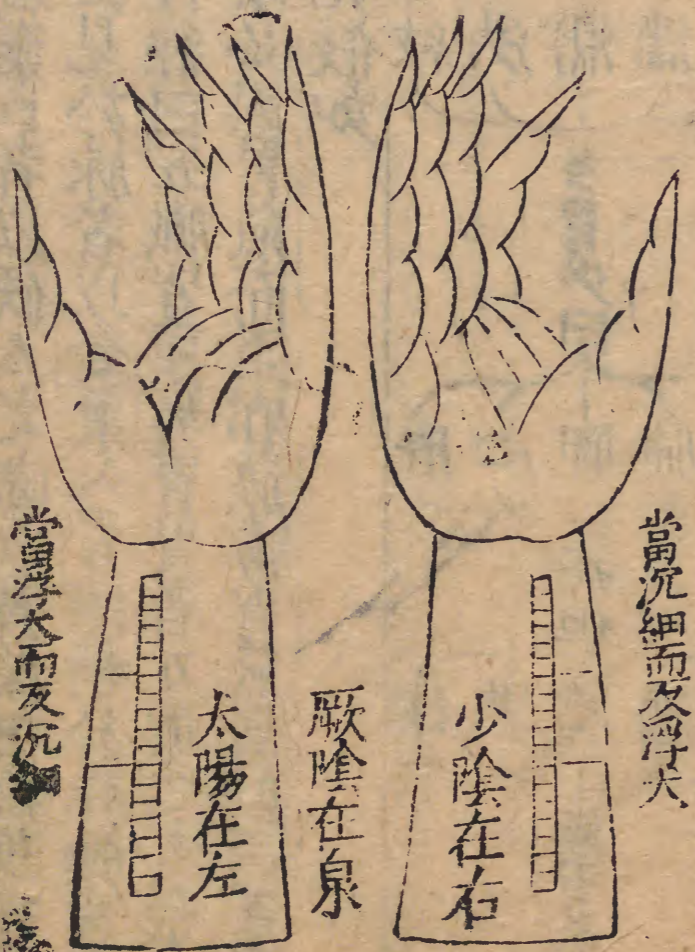 當沉細而反浮大
少陰在右
厥陰在泉
太陽在左
當浮大而反沉細